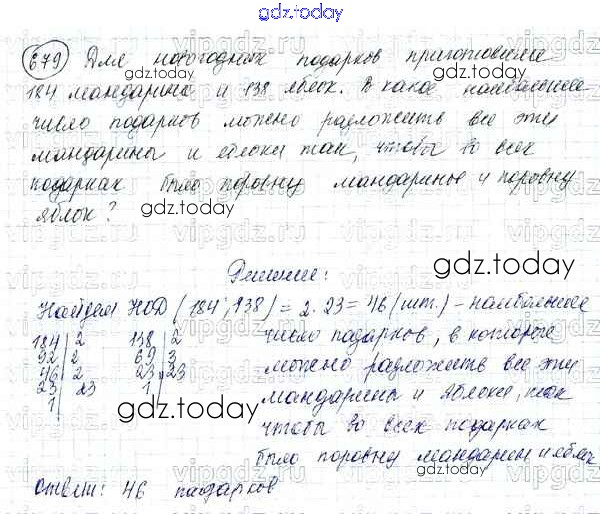 gdz.today
679 Для новогодних подарков приготовили
184 мандарина и 138 яблок. В какое наибольшее
число подарков можно разложить все эти
мандарины и яблоки так, чтобы во всех
подарках было поровну мандаринов и поровну
яблок?
gdz.today
gdz.today
gdz.today
gdz.today
Решение:
Найдем НОД (184, 138) = 2 · 23 = 46 (шт.) – наибольшее
число подарков, в которое
можно разложить все эти
мандарины и яблоки, так
чтобы во всех подарках
было поровну мандарин и яблок
184 | 2
92 | 2
46 | 2
23 | 23
1 |
138 | 2
69 | 3
23 | 23
1 |
gdz.today
Ответ: 46 подарков
gdz.today